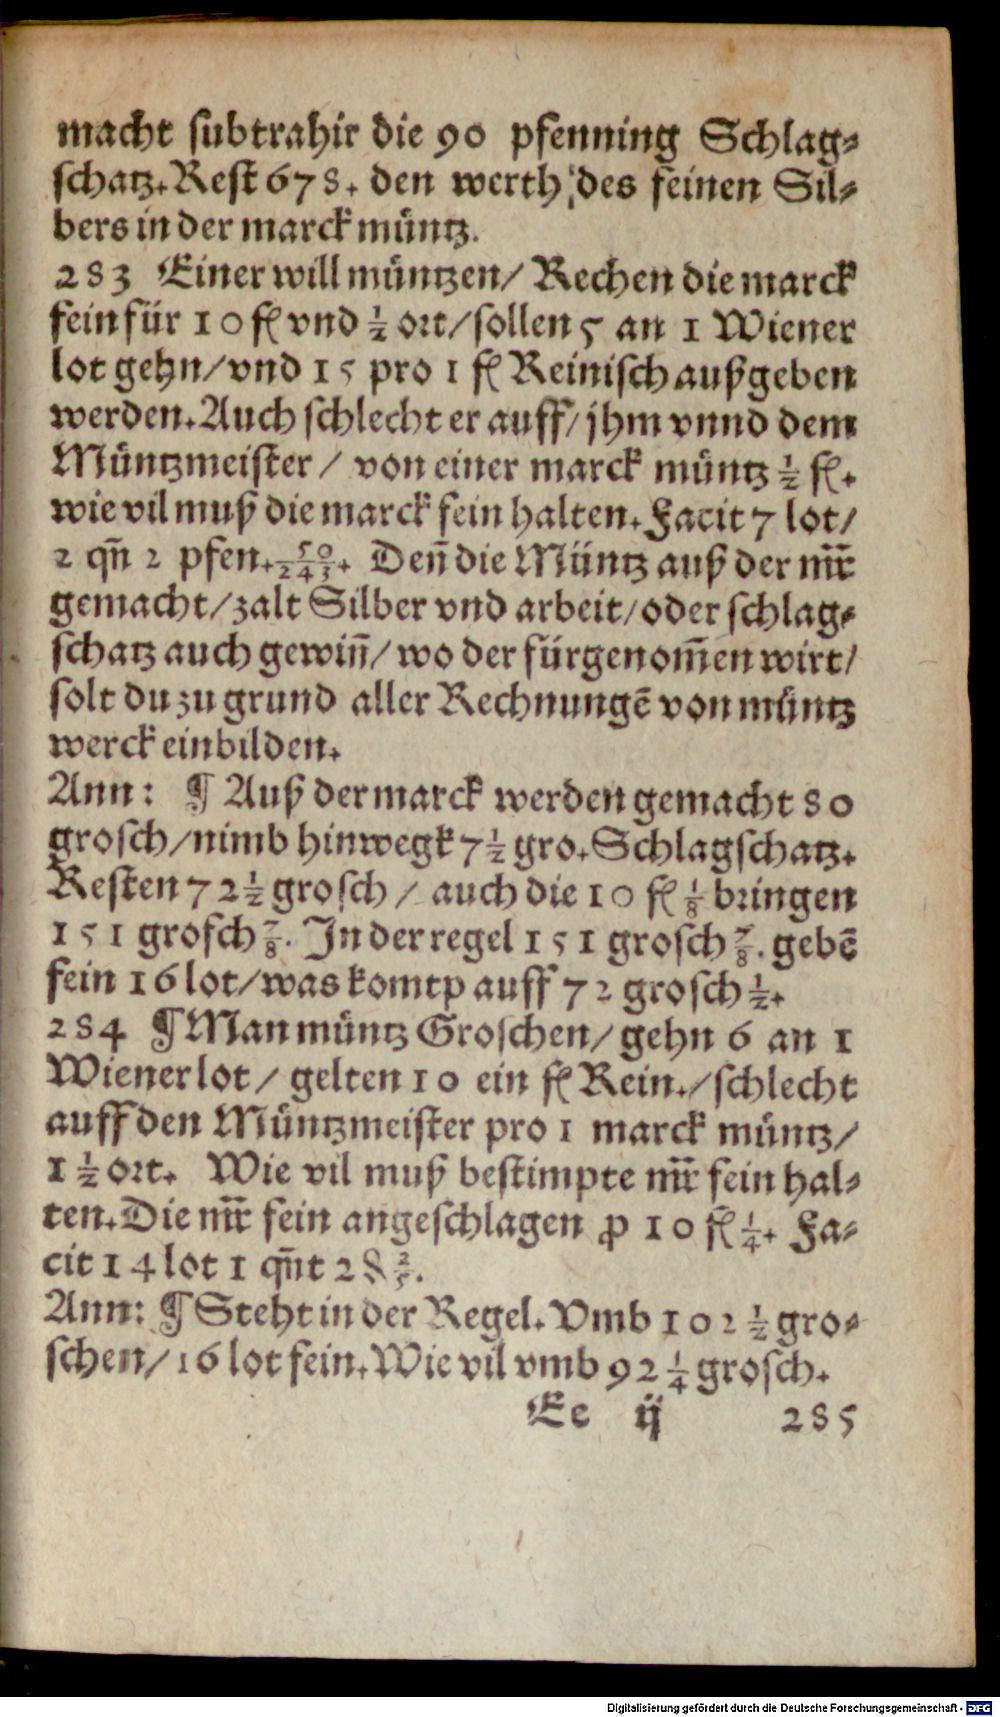 macht subtrahir die 90 pfenning Schlag⸗
schatz. Rest 678. den werth des feinen Sil⸗
bers in der marck müntz.
283 Einer will müntzen/ Rechen die marck
fein für 10 fl vnd ½ ort/ sollen 5 an 1 Wiener
lot gehn/ vnd 15 pro 1 fl Reinisch außgeben
werden. Auch schlecht er auff/ jhm vnnd dem
Müntzmeister/ von einer marck müntz ½ fl.
wie vil muß die marck fein halten. Facit 7 lot/
2 qñ 2 pfen. 50/243. Deñ die Müntz auß der mr̃
gemacht/ zalt Silber vnd arbeit/ oder schlag⸗
schatz auch gewiñ/ wo der fürgenom̃en wirt/
solt du zu grund aller Rechnungẽ von müntz
werck einbilden.
Ann: ¶ Auß der marck werden gemacht 80
grosch/ nimb hinwegk 7½ gro. Schlagschatz.
Resten 72½ grosch/ auch die 10 fl ⅛ bringen
151 grosch ⅞. In der regel 151 grosch ⅞. gebẽ
fein 16 lot/ was komtp auff 72 grosch ½.
284 ¶ Man müntz Groschen/ gehn 6 an 1
Wiener lot/ gelten 10 ein fl Rein./ schlecht
auff den Müntzmeister pro 1 marck müntz/
1½ ort. Wie vil muß bestimpte mr̃ fein hal⸗
ten. Die mr̃ fein angeschlagen ꝑ 10 fl ¼. Fa⸗
cit 14 lot 1 qñt 2 ₰ ⅖.
Ann: ¶ Steht in der Regel. Vmb 102½ gro⸗
schen/ 16 lot fein. Wie vil vmb 92¼ grosch.
Ee ij 285
Digitalisierung gefördert durch die Deutsche Forschungsgemeinschaft - DFG